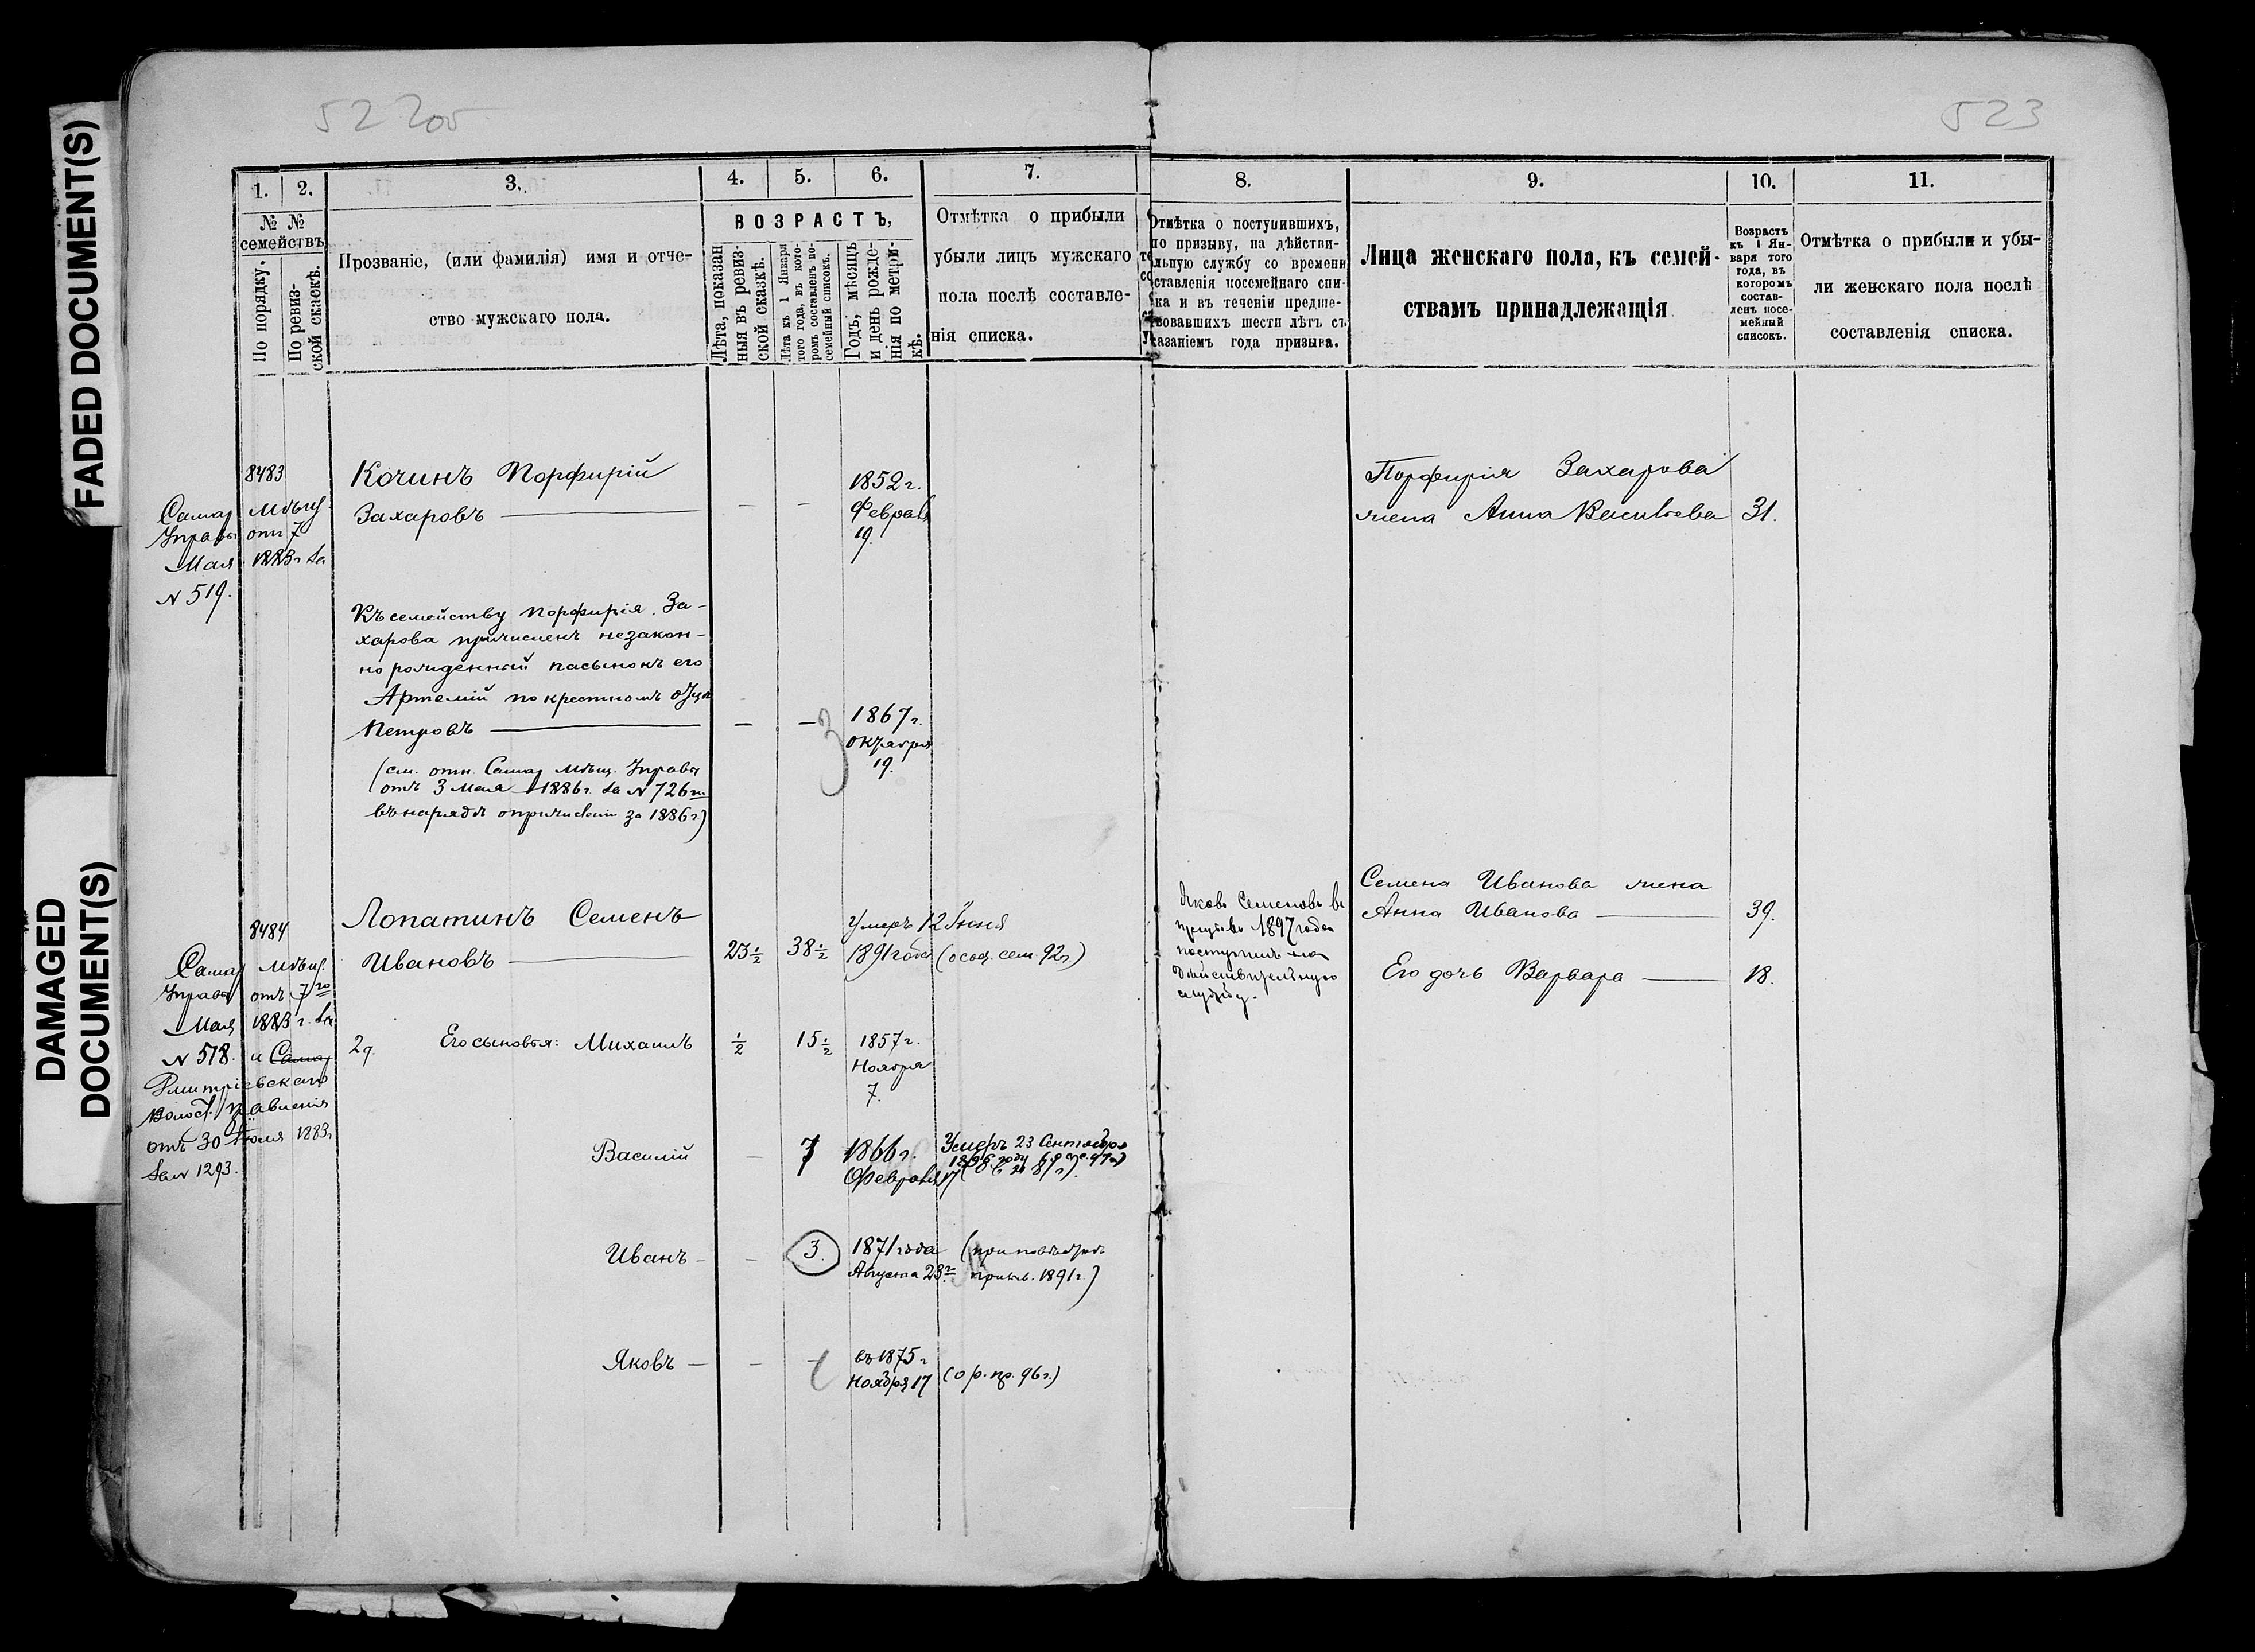 FADED DOCUMENT(S)
DAMAGED
DOCUMENT(S)
523
1. 2. 3. 4. 5. 6. 7.
№ №
семействъ
По порядку.
По ревиз-
ской скаскѣ.
Прозваніе, (или фамилія) имя и отче-
ство мужскаго пола.
ВОЗРАСТЪ,
Лѣта, показан
ныя въ ревиз-
ской сказкѣ.
Лѣта къ 1 Января
того года, въ кото-
ромъ составленъ по-
семейный списокъ.
Годъ, мѣсяцъ
и день рожде-
нія по метри-
кѣ.
Отмѣтка о прибыли
убыли лицъ мужскаго
пола послѣ составле-
нія списка.
8483
Самар Мѣщ.
Управы отъ 7
Мая 1883 г за
№ 519.
Кочинъ Порфирій
Захаровъ — — —
1852 г.
Февраля
19.
Къ семейству Порфирія За-
харова причисленъ незакон-
но рожденный пасынокъ его
Артемій по крестномъ отцѣ
Петровъ — — — 3
1867 г.
октября
19.
(см. отн. Самар Мѣщ. Управы
отъ 3 Мая 1886 г. за № 726
въ нарядѣ о причисленіи за 1886 г.)
8484
Самар Мѣщ.
Управы отъ 7го
Мая 1883 г. за
№ 518. и Самар
Дмитріевскаго
Волост. правленія
отъ 30 Іюля 1883 г
за № 1293.
Лопатинъ Семенъ
Ивановъ — 23½ 38½
Умеръ 12 Іюня
1891 года (особ. сем. 92 г.)
29. Его сыновья: Михаилъ ½ 15½ 1857 г.
Ноября
7.
Василій — 7 1866 г.
Февраля 17
Умеръ 23 Сентября
Иванъ — — 3. 1871 года
Августа 23
1891 г.)
Яковъ — — въ 1875 г
Ноября 17 (о р. пр. 96 г.)
8. 9. 10. 11.
Отмѣтка о поступившихъ,
по призыву, на дѣйстви-
льную службу со времени
оставленія посемейнаго спи-
ка и въ теченіи предше-
вовавшихъ шести лѣтъ съ
казаніемъ года призыва.
Лица женскаго пола, къ семей-
ствамъ принадлежащія
Возрастъ
къ 1 Ян-
варя того
года, въ
которомъ
состав-
ленъ посе-
мейный
списокъ.
Отмѣтка о прибыли и убы-
ли женскаго пола послѣ
составленія списка.
Порфирія Захарова
жена Анна Васильева 31.
Яковъ Семеновъ въ
призывъ 1897 года
поступилъ на
дѣйствительную
службу.
Семена Иванова жена
Анна Иванова — 39.
Его дочь Варвара — 18.